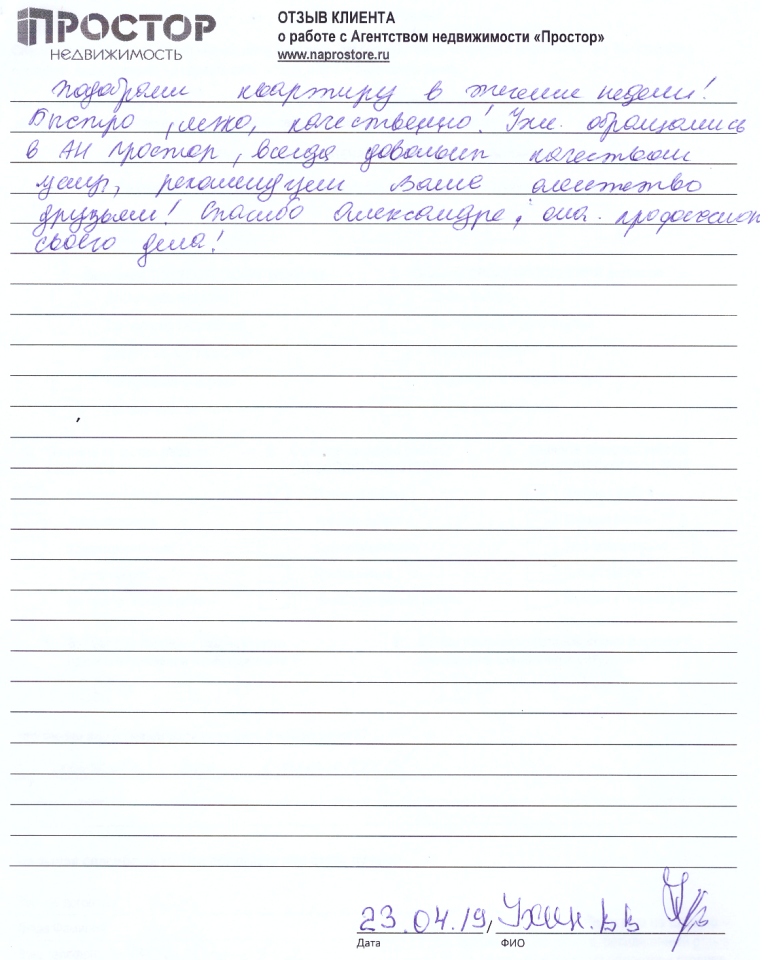 ПРОСТОР
НЕДВИЖИМОСТЬ
ОТЗЫВ КЛИЕНТА
о работе с Агентством недвижимости «Простор»
www.naprostore.ru
Подобрали квартиру в течение недели!
Быстро, легко, качественно! Уже обращались
в АН Простор, всегда довольны качеством
услуг, рекомендуем Ваше агентство
друзьям! Спасибо Александре, она профессион
своего дела!
23.04.19,
Дата
ФИО